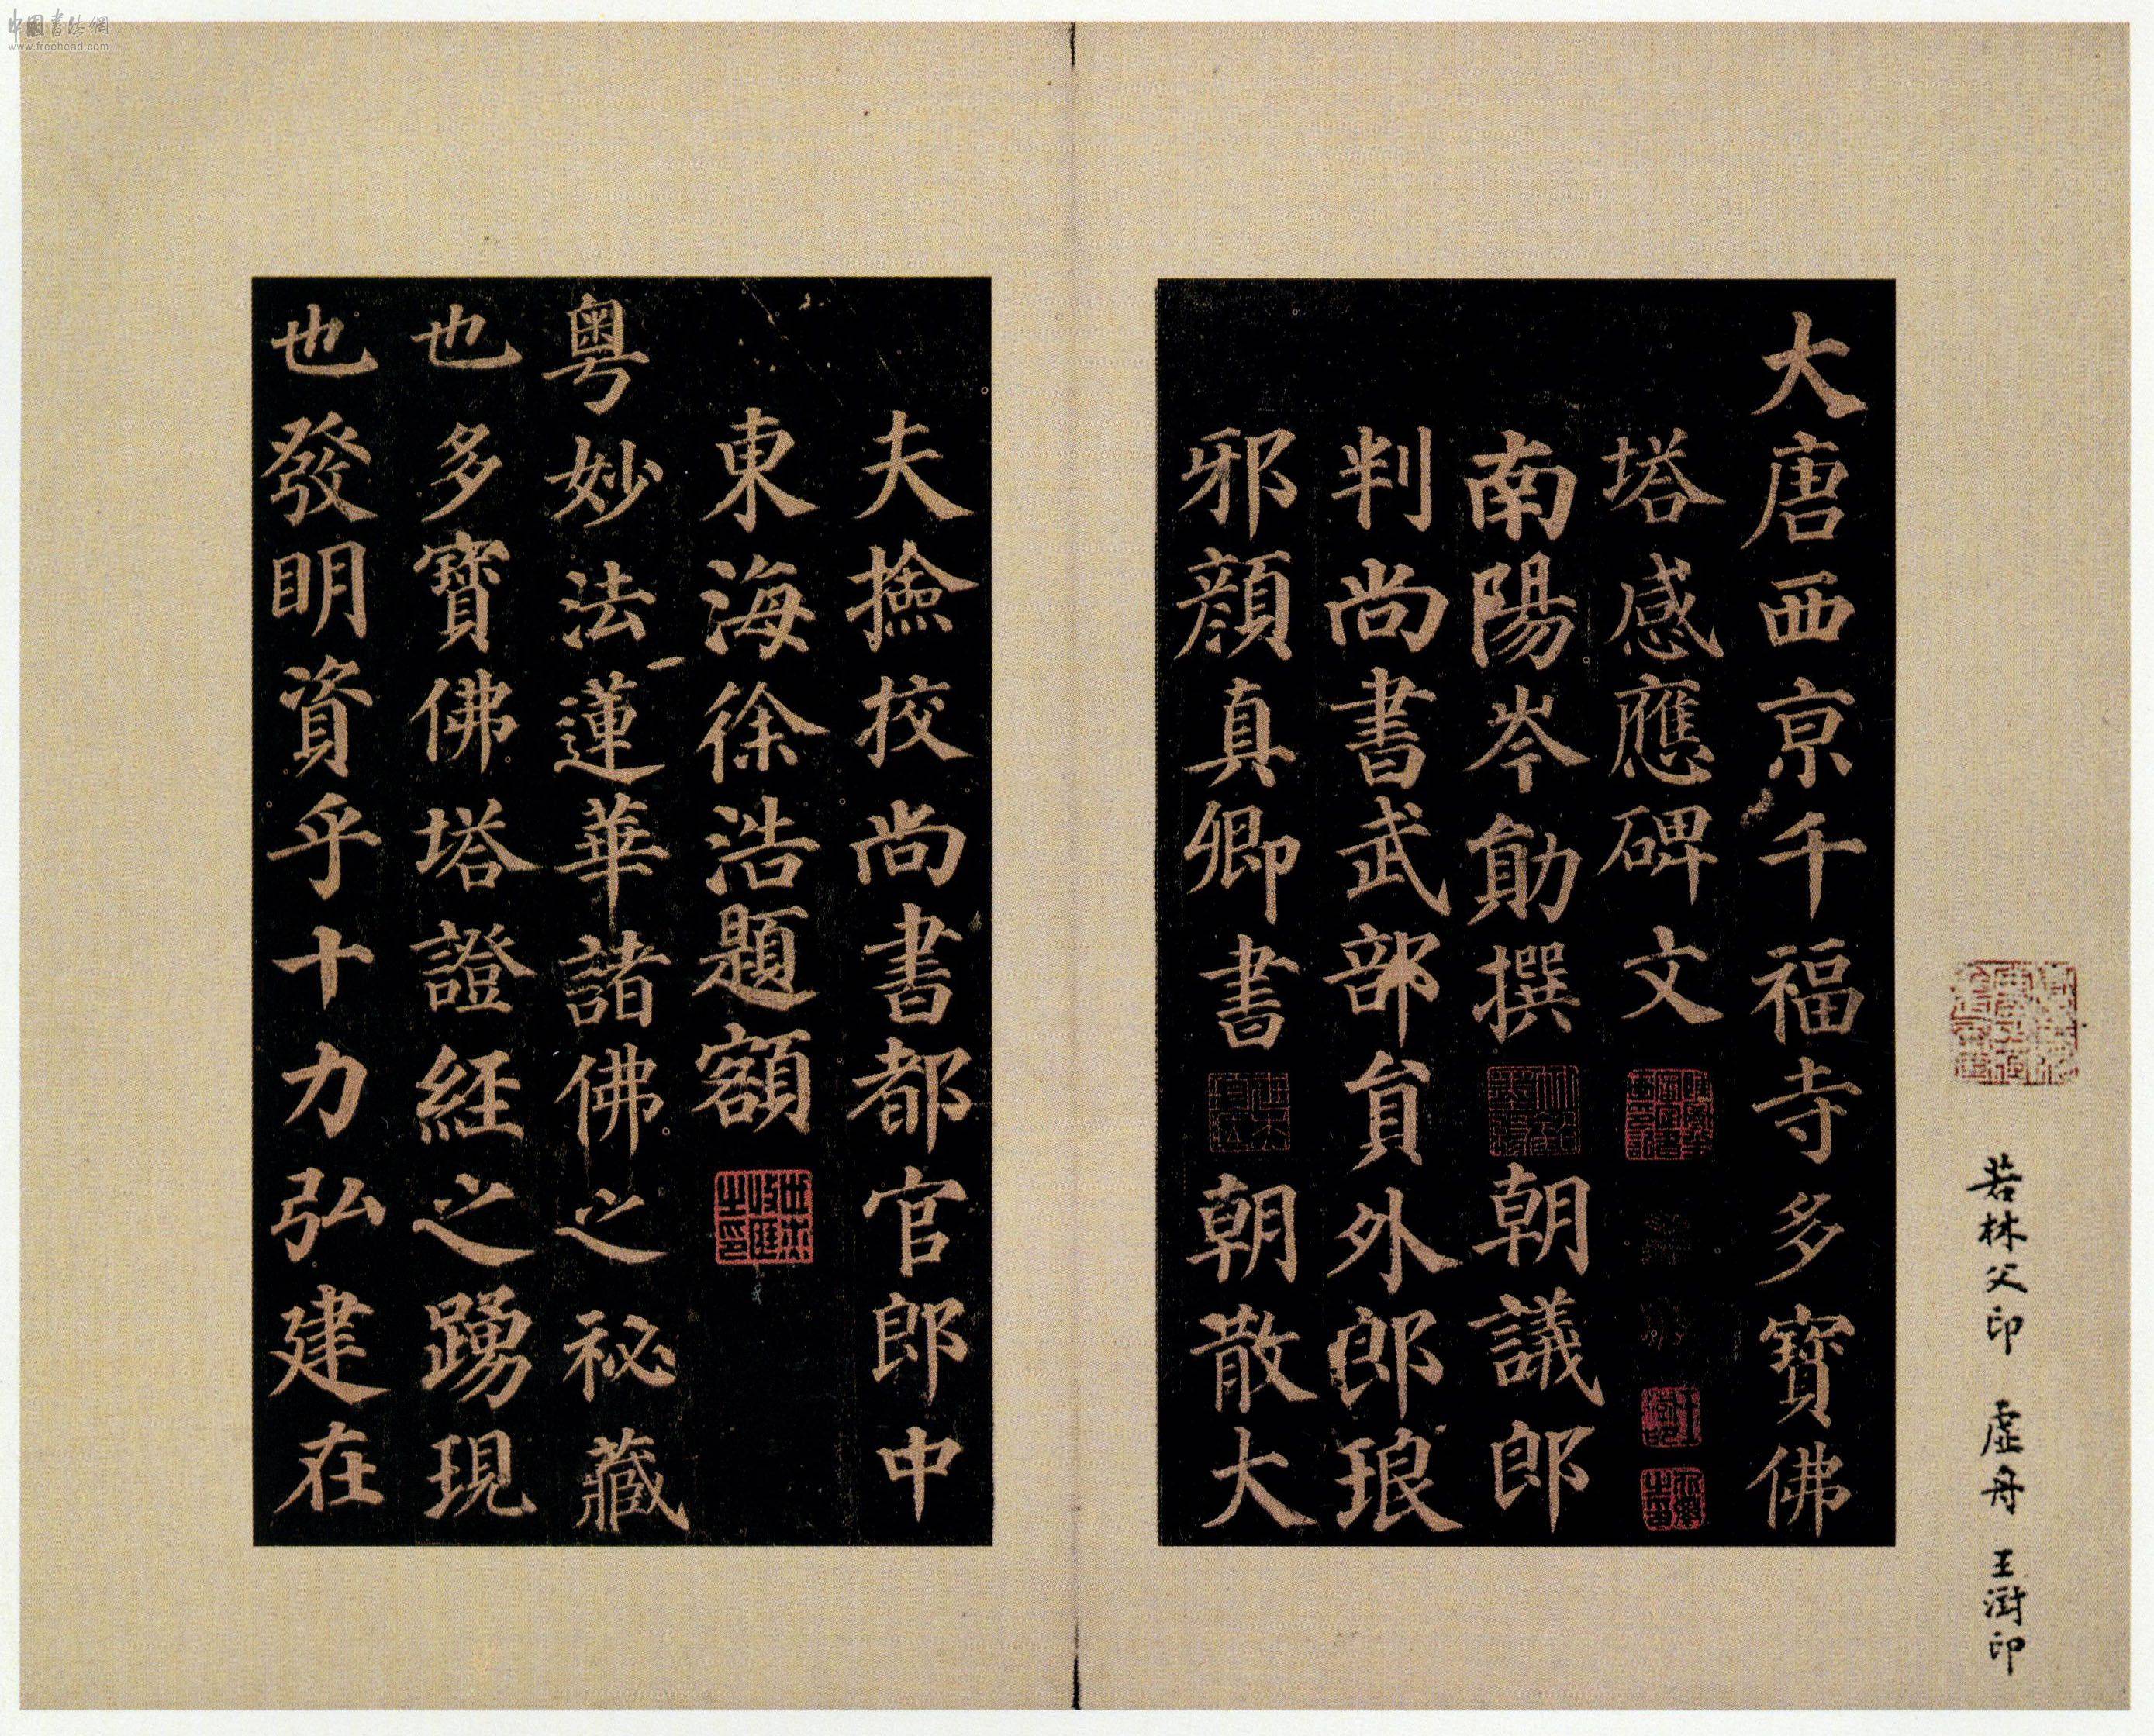 中国书法網
www.freehead.com
大唐西京千福寺多寶佛
塔感應碑文
南陽岑勛撰朝議郎
判尚書武部貟外郎琅
邪顔真卿書朝散大
夫撿挍尚書都官郎中
東海徐浩題額
粵妙法蓮華諸佛之祕藏
也多寶佛塔證經之踴現
也發明資乎十力弘建在
若林父印 虛舟 王澍印